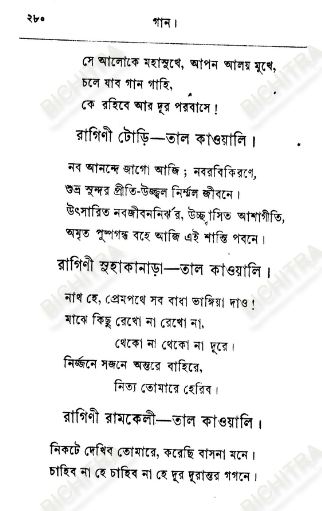 ২৮০
গান।
সে আলোকে মহাসুখে, আপন আলয় মুখে,
চলে যাব গান গাহি,
কে রহিবে আর দূর পরবাসে!
রাগিণী টোড়ি—তাল কাওয়ালি।
নব আনন্দে জাগো আজি; নবরবিকিরণে,
শুভ্র সুন্দর প্রীতি-উজ্জ্বল নির্ম্মল জীবনে।
উৎসারিত নবজীবননির্ঝর, উচ্ছ্বাসিত আশাগীতি,
অমৃত পুষ্পগন্ধ বহে আজি এই শান্তি পবনে।
রাগিণী সুহাকানাড়া—তাল কাওয়ালি।
নাথ হে, প্রেমপথে সব বাধা ভাঙ্গিয়া দাও!
মাঝে কিছু রেখো না রেখো না,
থেকো না থেকো না দূরে।
নির্জ্জনে সজনে অন্তরে বাহিরে,
নিত্য তোমারে হেরিব।
রাগিণী রামকেলী—তাল কাওয়ালি।
নিকটে দেখিব তোমারে, করেছি বাসনা মনে।
চাহিব না হে চাহিব না হে দূর দূরান্তর গগনে।
BICHITRA